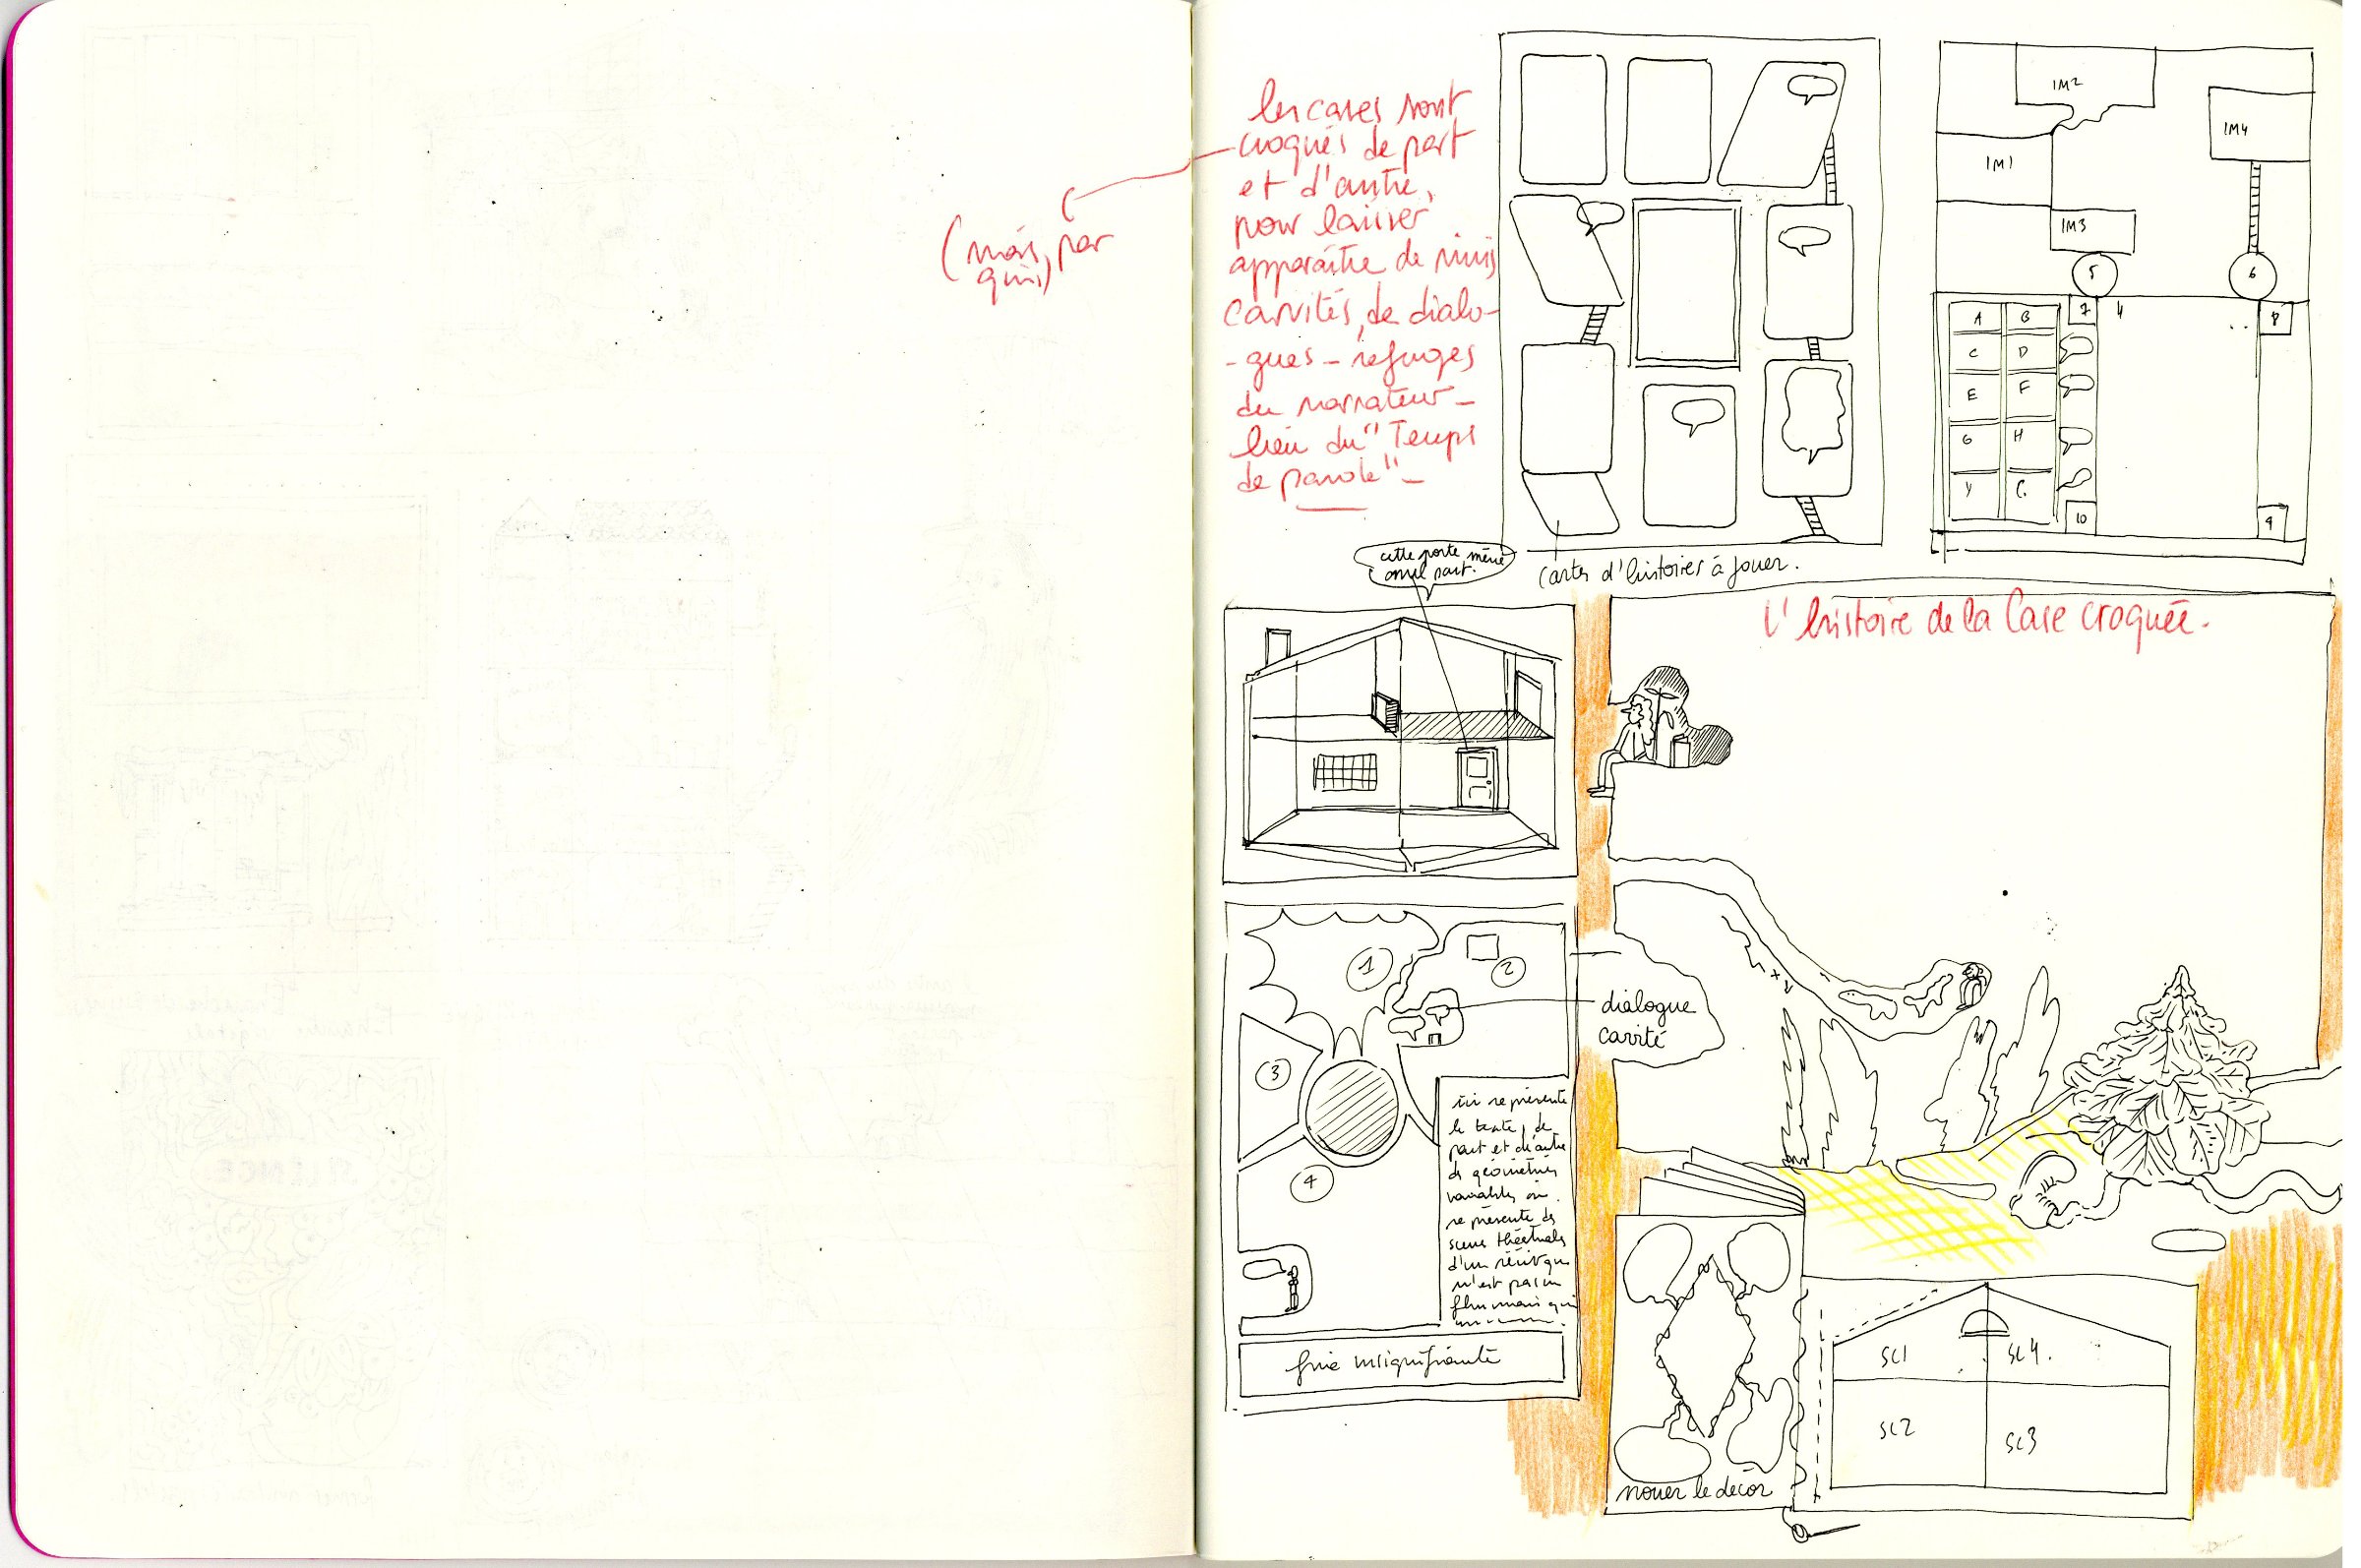 les cases sont
croqués de part
et d'autre,
pour laisser
apparaître de minis
cavités, de dialo-
-gues - refuges
du narrateur -
lieu du "Temps
de parole" -
(mais, par
qui)
IM2
IM4
IM1
IM3
5
6
A B 7 4 8
C D
E F
G H
Y C.
10 9
cette porte mène
nulle part.
cartes d'histoires à jouer.
L'histoire de la Case croquée.
1
2
3
4
dialogue
cavité
ici représente
le texte, de
part et d'autre
de géométries
variables où
représente des
scènes théâtrales
d'un récit qui
n'est pas un
film mais qui
frise insignifiante
nouer le décor
SC1 SC4.
SC2 SC3
SILENCE